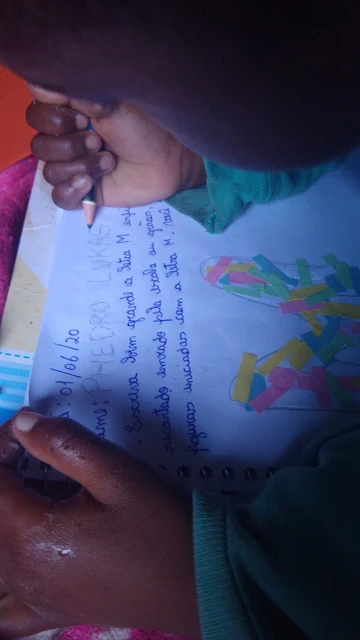 a: 01/06/20
ome: PHEDRO LUKAS
- Escreva bem grande a letra M
recortado enviado pela escola ou grãos,
figuras iniciadas com a letra M.